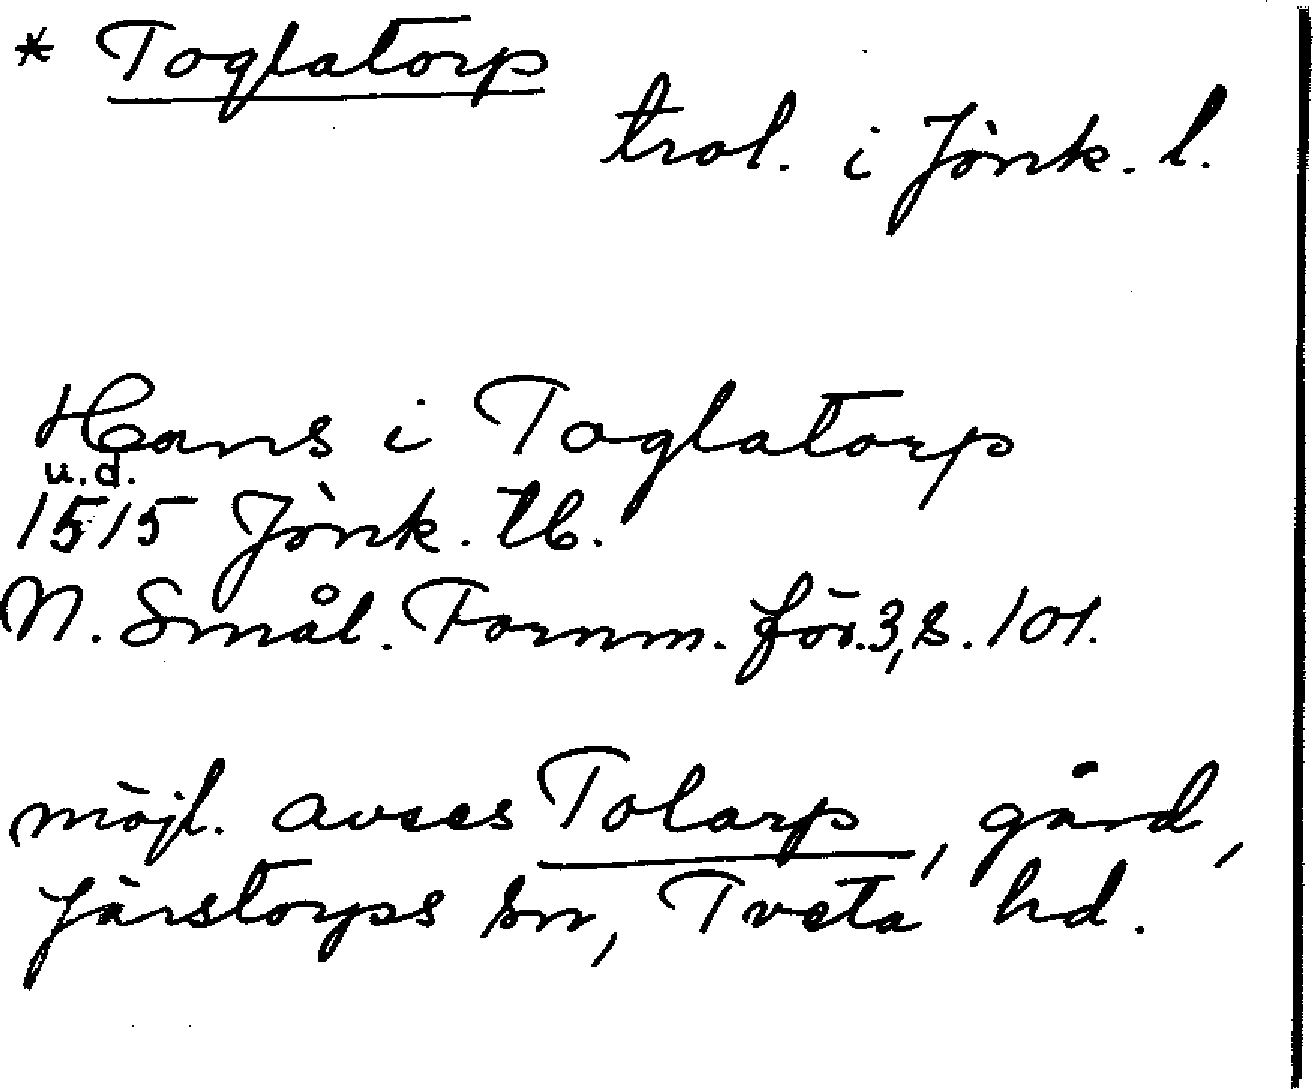 * Toglatorp
trol. i Jönk. l.
Hans i Toglatorp
u.d.
1515 Jönk. tb.
N. Smål. Fornm. för. 3, s. 101.
möjl. avses Tolarp, gård,
Järstorps sn, Tveta hd.